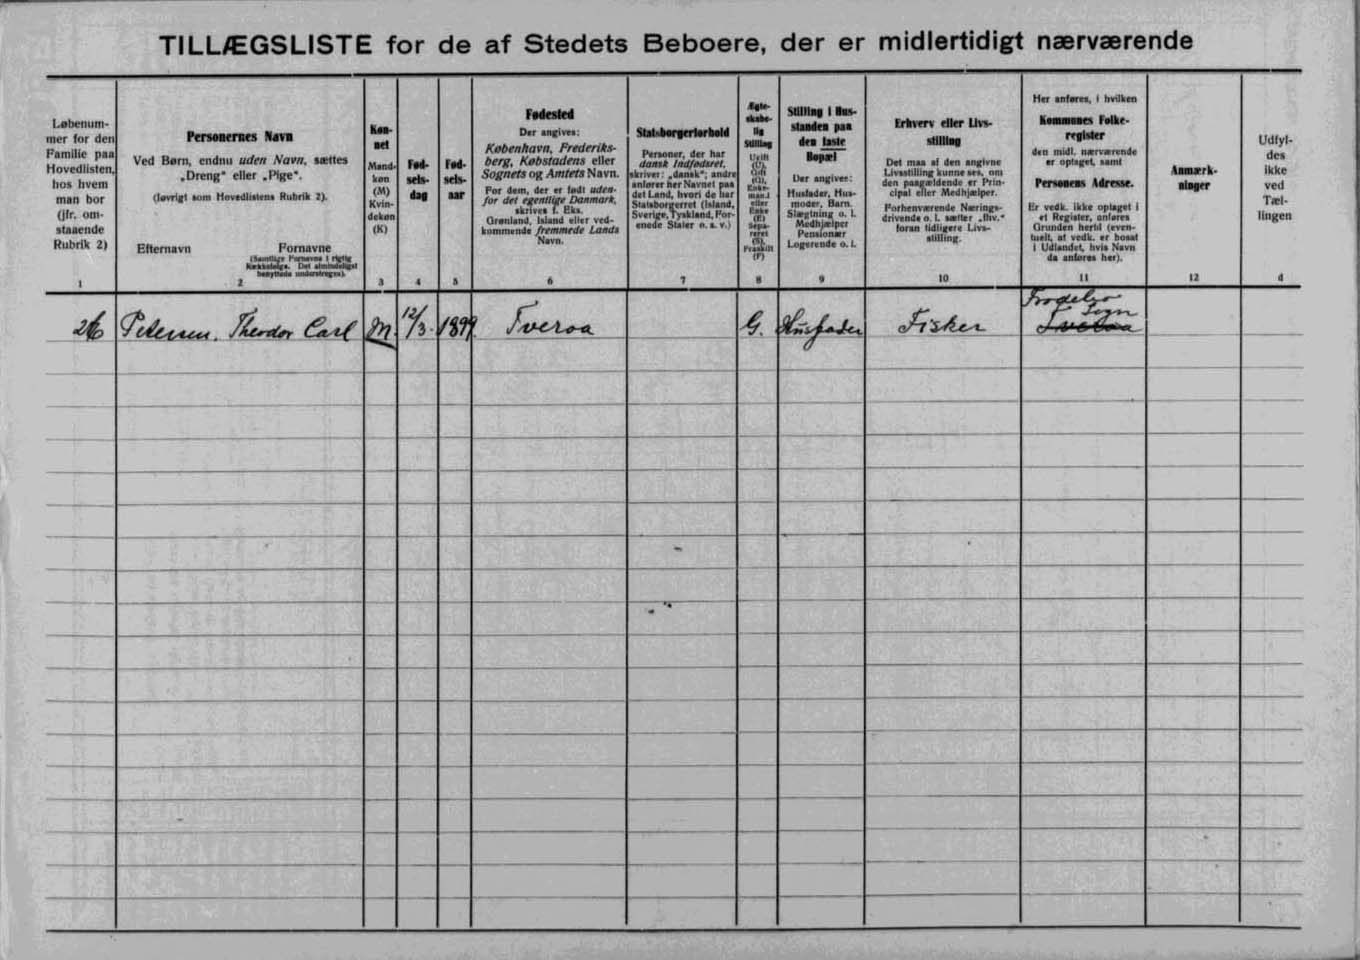 TILLÆGSLISTE for de af Stedets Beboere, der er midlertidigt nærværende
Løbenum-
mer for den
Familie paa
Hovedlisten,
hos hvem
man bor
(jfr. om-
staaende
Rubrik 2)
1
Personernes Navn
Ved Børn, endnu uden Navn, sættes
„Dreng“ eller „Pige“.
(Iøvrigt som Hovedlistens Rubrik 2).
Efternavn Fornavne
(Samtlige Fornavne i rigtig
Rækkefølge. Det almindeligst
benyttede understreges).
2
Køn-
net
Mand-
køn
(M)
Kvin-
dekøn
(K)
3
Fød-
sels-
dag
4
Fød-
sels-
aar
5
Fødested
Der angives:
København, Frederiks-
berg, Købstadens eller
Sognets og Amtets Navn.
For dem, der er født uden-
for det egentlige Danmark,
skrives f. Eks.
Grønland, Island eller ved-
kommende fremmede Lands
Navn.
6
Statsborgerforhold
Personer, der har
dansk Indfødsret,
skriver: „dansk“; andre
anfører her Navnet paa
det Land, hvori de har
Statsborgerret (Island,
Sverige, Tyskland, For-
enede Stater o. s. v.)
7
Ægte-
skabe-
lig
Stilling
Ugift
(U),
Gift
(G),
Enke-
mand
eller
Enke
(E)
Sepa-
reret
(S),
Fraskilt
(F)
8
Stilling i Hus-
standen paa
den faste
Bopæl
Der angives:
Husfader, Hus-
moder, Barn,
Slægtning o. l.
Medhjælper
Pensionær
Logerende o. l.
9
Erhverv eller Livs-
stilling
Det maa af den angivne
Livsstilling kunne ses, om
den paagældende er Prin-
cipal eller Medhjælper.
Forhenværende Nærings-
drivende o. l. sætter „fhv.“
foran tidligere Livs-
stilling.
10
Her anføres, i hvilken
Kommunes Folke-
register
den midl. nærværende
er optaget, samt
Personens Adresse.
Er vedk. ikke optaget i
et Register, anføres
Grunden hertil (even-
tuelt, at vedk. er bosat
i Udlandet, hvis Navn
da anføres her).
11
Anmærk-
ninger
12
Udfyl-
des
ikke
ved
Tæl-
lingen
d
26 Petersen, Theodor Carl M. 12/3. 1899. Tveroa G. Husfader Fisker Frodebo
Sogn
Tveroa